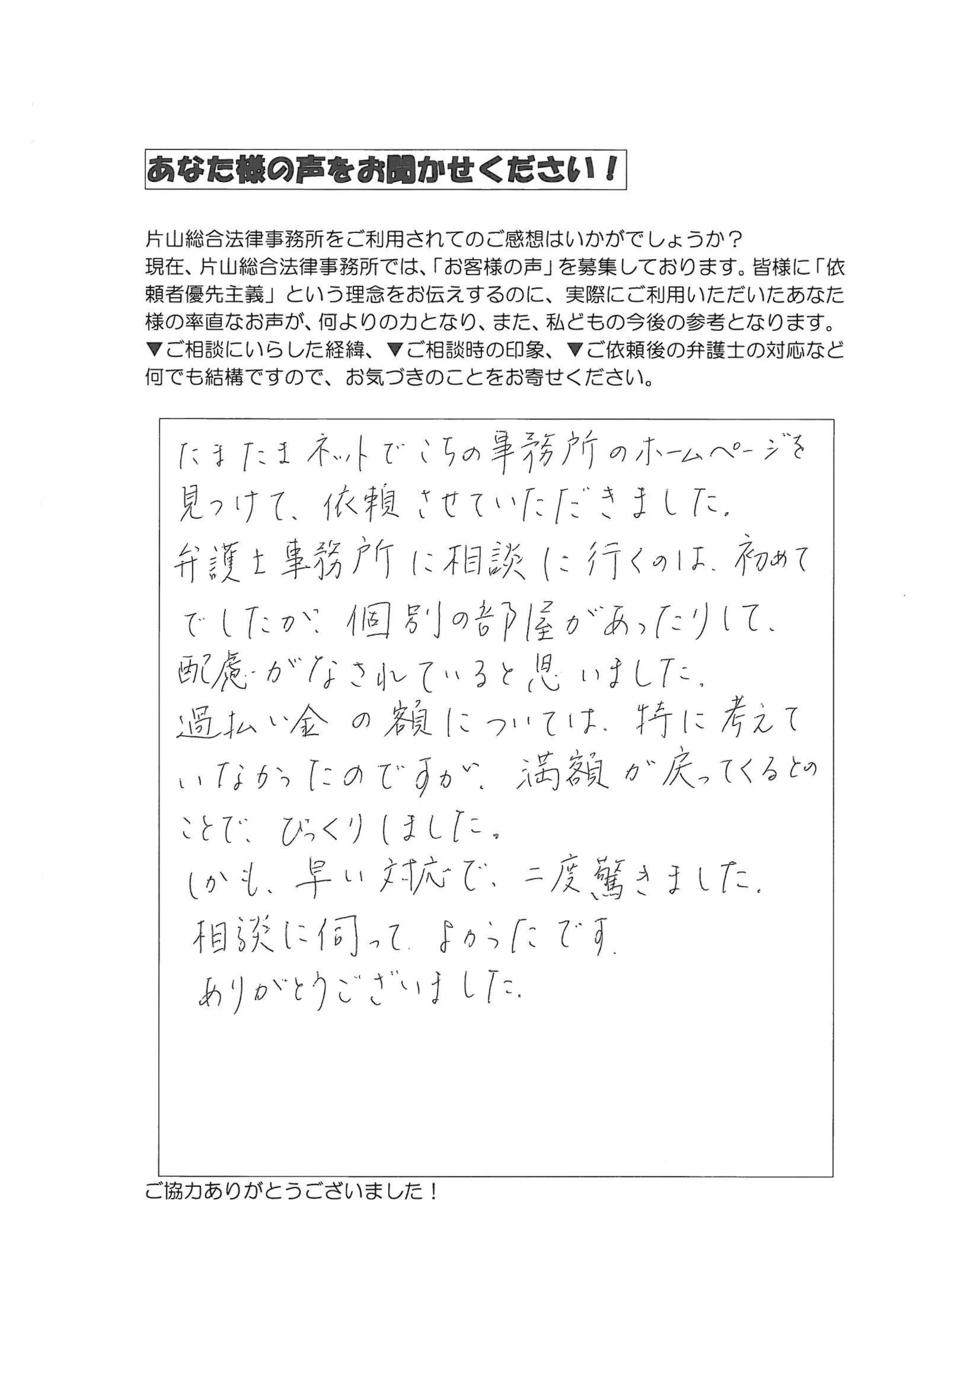 あなた様の声をお聞かせください！
片山総合法律事務所をご利用されてのご感想はいかがでしょうか？
現在、片山総合法律事務所では、「お客様の声」を募集しております。皆様に「依
頼者優先主義」という理念をお伝えするのに、実際にご利用いただいたあなた
様の率直なお声が、何よりの力となり、また、私どもの今後の参考となります。
▼ご相談にいらした経緯、▼ご相談時の印象、▼ご依頼後の弁護士の対応など
何でも結構ですので、お気づきのことをお寄せください。
たまたまネットでこちの事務所のホームページを
見つけて、依頼させていただきました。
弁護士事務所に相談に行くのは、初めて
でしたが、個別の部屋があったりして、
配慮がなされていると思いました。
過払い金の額については、特に考えて
いなかったのですが、満額が戻ってくるとの
ことで、びっくりしました。
しかも、早い対応で、二度驚きました。
相談に伺って、よかったです。
ありがとうございました。
ご協力ありがとうございました！